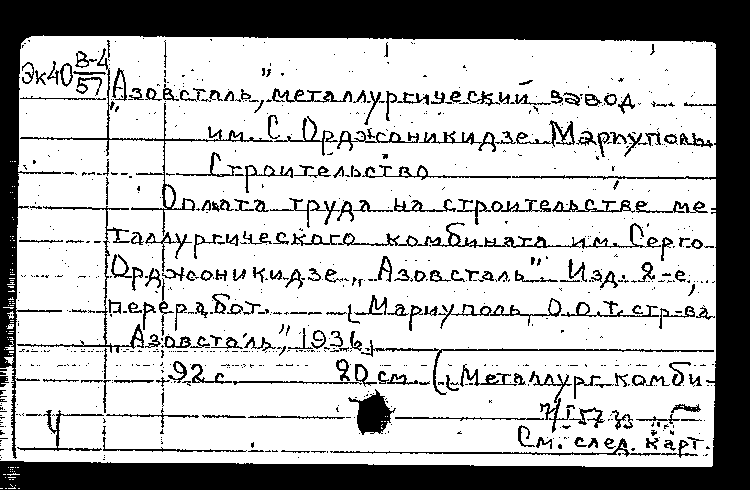 Эк40 В-4
57
„Азовсталь", металлургический завод
им. С. Орджоникидзе. Мариуполь.
Строительство
Оплата труда на строительстве ме-
таллургического комбината им. Серго
Орджоникидзе „Азовсталь". Изд. 2-е,
переработ. [Мариуполь, О.О.Т. стр-ва
„Азовсталь", 1936]
92 с. 20 см. ([Металлург. комби-
Ч
См. след. карт.